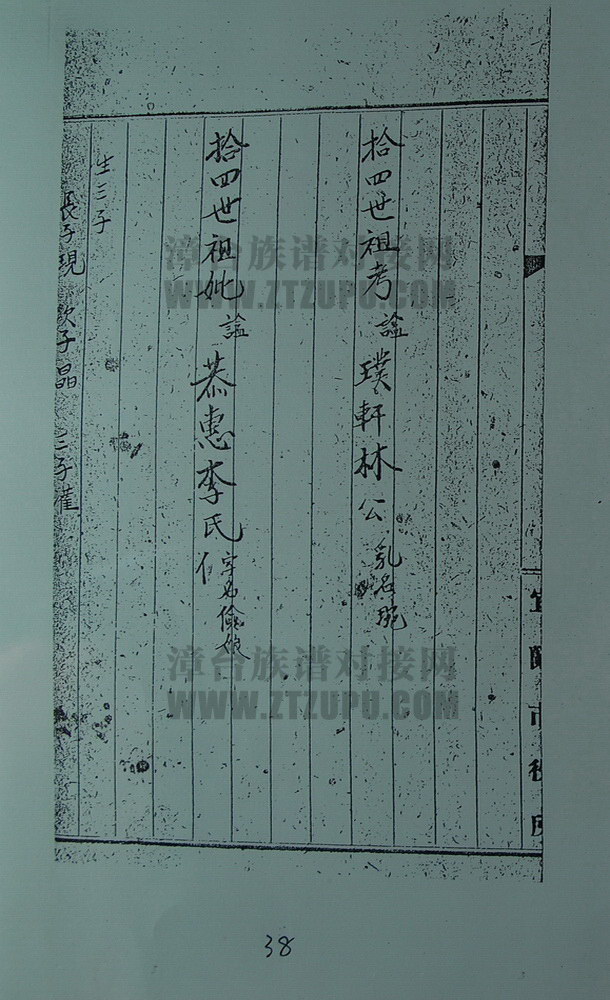 宜蘭市
拾四世祖考 謚 璞軒林公 乳名琬
拾四世祖妣 謚 恭惠李氏 字名儉娘
生三子
長子現 次子晶 三子
漳台族谱对接网
WWW.ZTZUPU.COM
漳台族谱对接网
WWW.ZTZUPU.COM
38